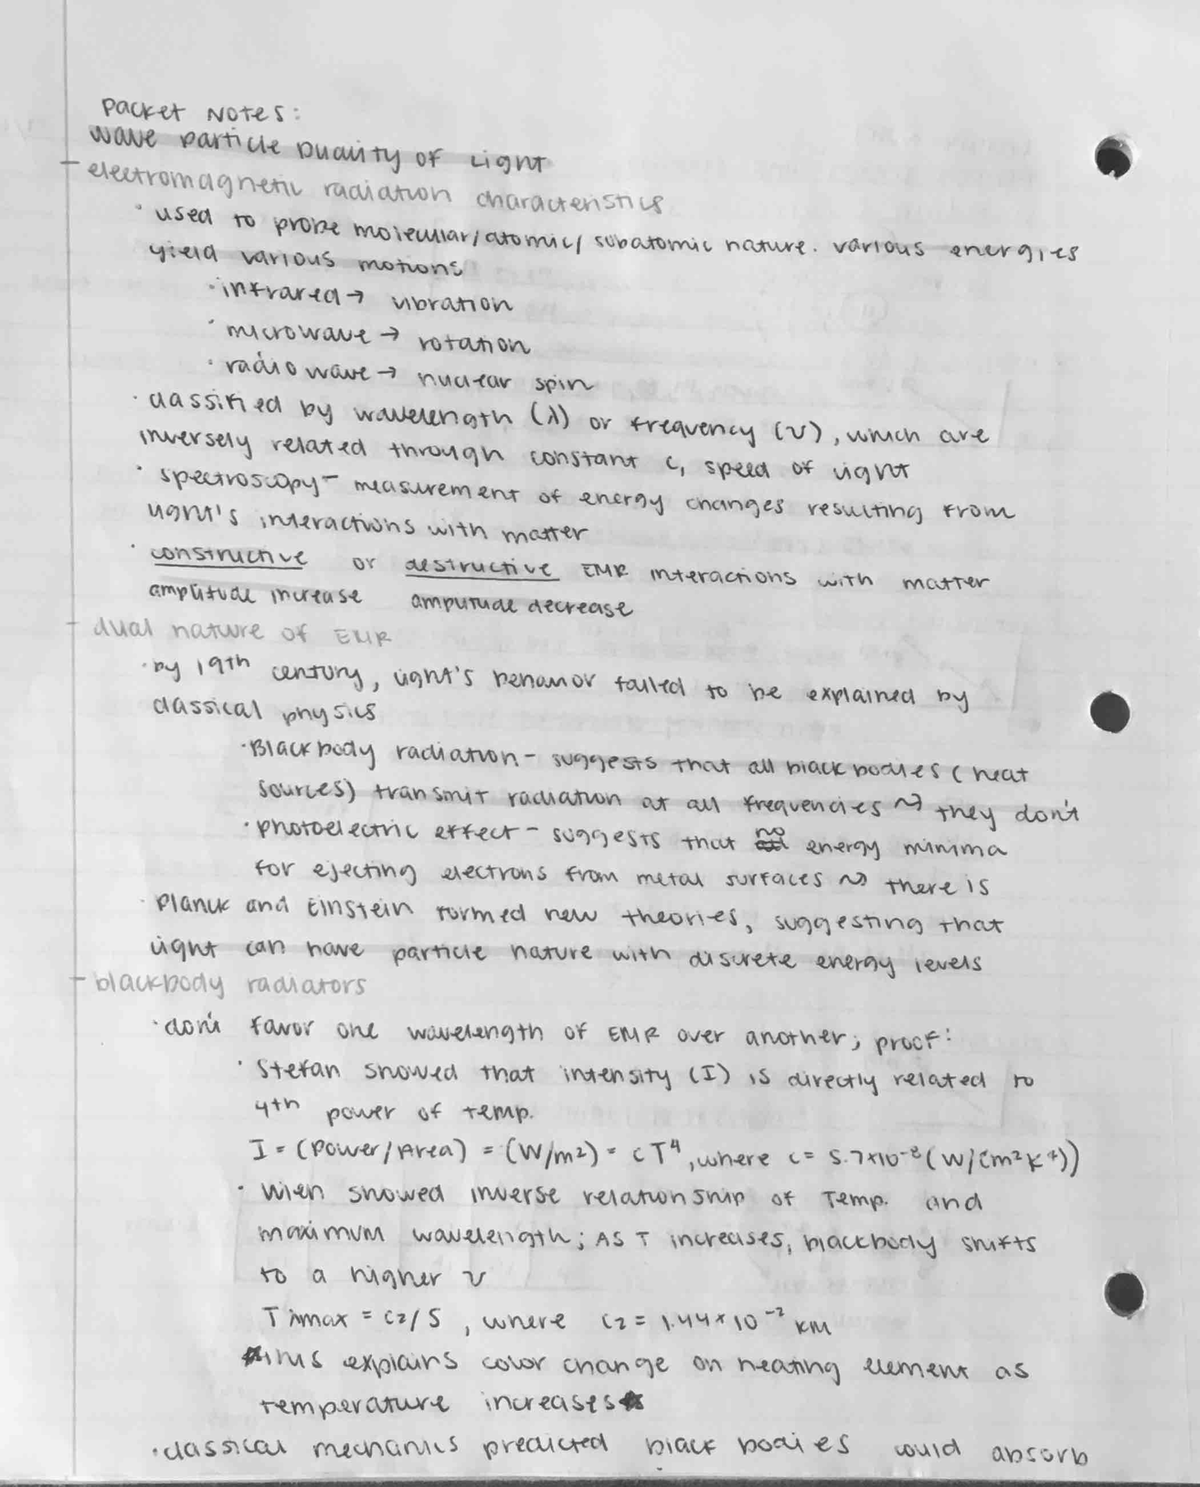 Packet Notes:
Wave Particle Duality of Light
- electromagnetic radiation characteristics
· used to probe molecular/atomic/subatomic nature. various energies
yield various motions
· infrared → vibration
· microwave → rotation
· radiowave → nuclear spin
· classified by wavelength (λ) or frequency (ν), which are
inversely related through constant c, speed of light
· spectroscopy - measurement of energy changes resulting from
light's interactions with matter
· constructive or destructive EMR interactions with matter
amplitude increase amplitude decrease
- dual nature of EMR
· by 19th century, light's behavior failed to be explained by
classical physics
· Blackbody radiation - suggests that all black bodies (heat
sources) transmit radiation at all frequencies ⤳ they don't
· photoelectric effect - suggests that no energy minima
for ejecting electrons from metal surfaces ⤳ there is
· Planck and Einstein formed new theories, suggesting that
light can have particle nature with discrete energy levels
- blackbody radiators
· don't favor one wavelength of EMR over another; proof:
· Stefan showed that intensity (I) is directly related to
4th power of temp.
I = (Power/Area) = (W/m²) = cT⁴, where c = 5.7×10⁻⁸ (W/(m²K⁴))
· Wien showed inverse relationship of Temp. and
maximum wavelength; As T increases, blackbody shifts
to a higher ν
Tλmax = c₂/5, where c₂ = 1.44×10⁻² KM
*this explains color change on heating element as
temperature increases*
· classical mechanics predicted black bodies could absorb